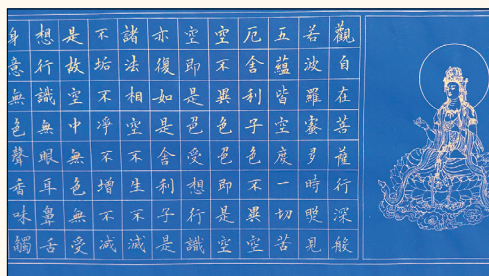 觀自在菩薩行深般
若波羅蜜多時照見
五蘊皆空度一切苦
厄舍利子色不異空
空不異色色即是空
空即是色受想行識
亦復如是舍利子是
諸法相空不生不滅
不垢不淨不增不減
是故空中無色無受
想行識無眼耳鼻舌
身意無色聲香味觸